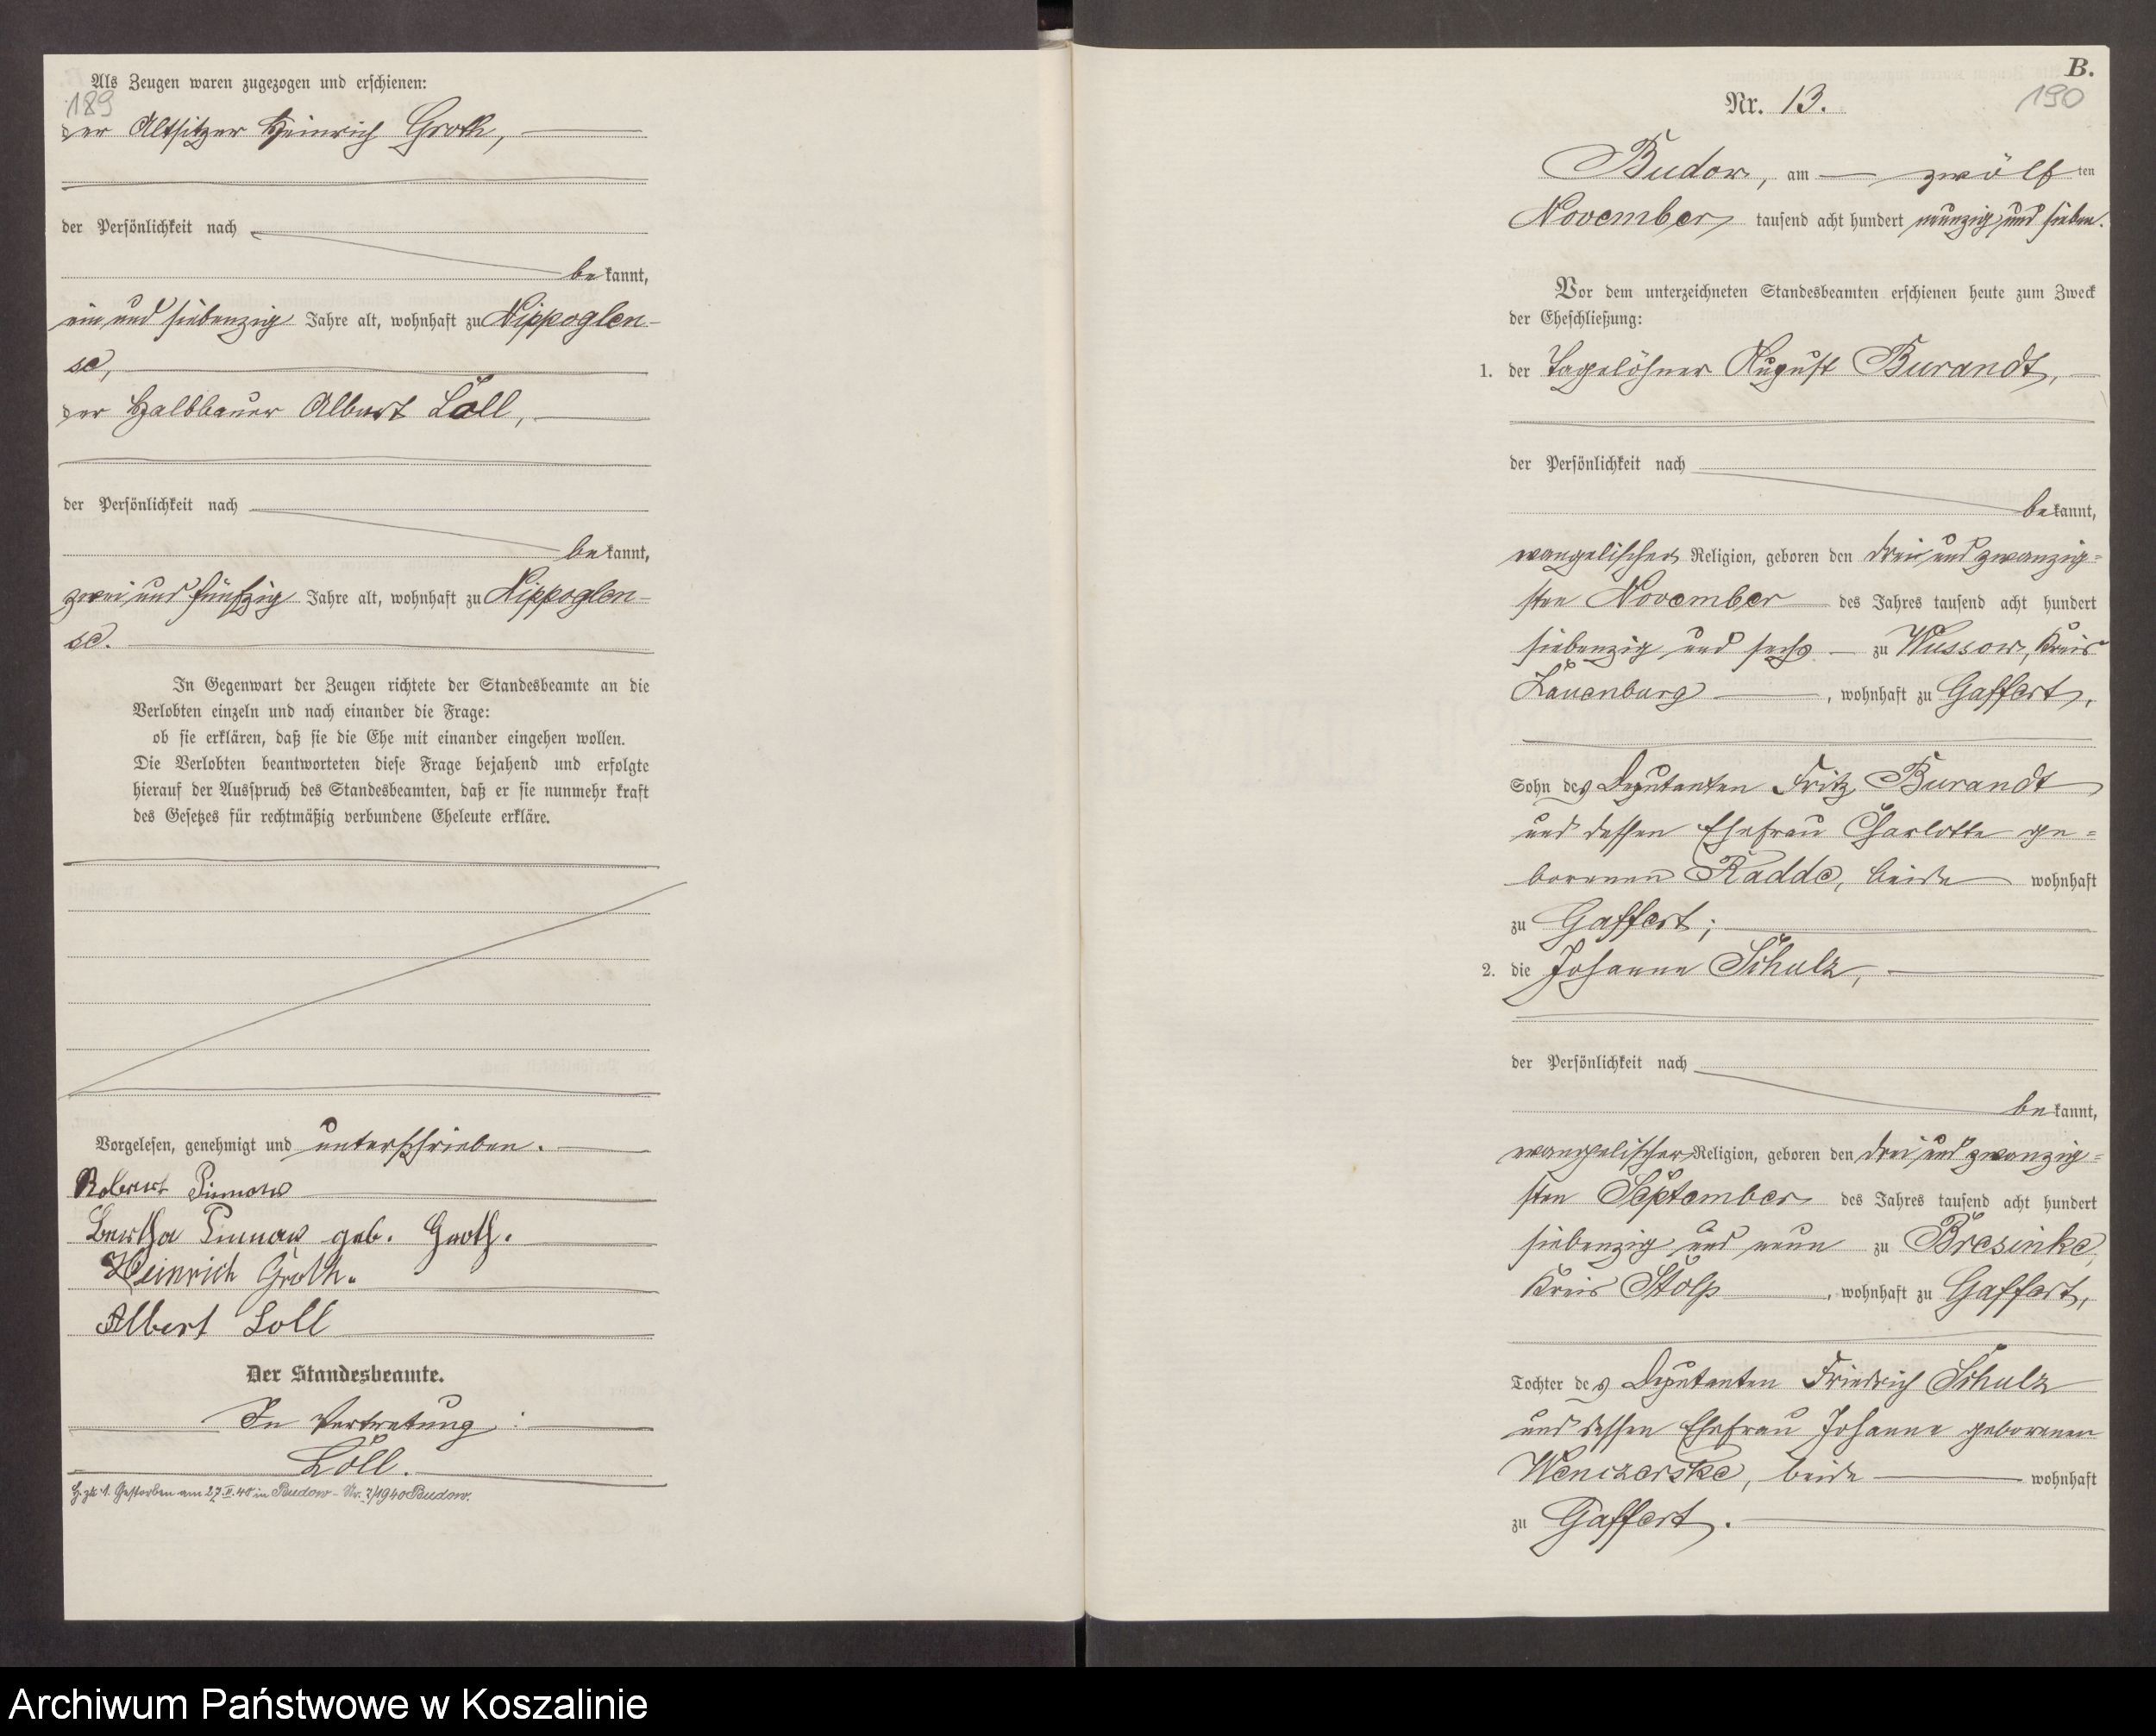 Als Zeugen waren zugezogen und erschienen:
189
der Altsitzer Heinrich Groth,
der Persönlichkeit nach
bekannt,
ein und siebenzig Jahre alt, wohnhaft zu Nippoglen-
se,
der Halbbauer Albert Löll,
der Persönlichkeit nach
bekannt,
zwei und fünfzig Jahre alt, wohnhaft zu Nippoglen-
se.
In Gegenwart der Zeugen richtete der Standesbeamte an die
Verlobten einzeln und nach einander die Frage:
ob sie erklären, daß sie die Ehe mit einander eingehen wollen.
Die Verlobten beantworteten diese Frage bejahend und erfolgte
hierauf der Ausspruch des Standesbeamten, daß er sie nunmehr kraft
des Gesetzes für rechtmäßig verbundene Eheleute erkläre.
Vorgelesen, genehmigt und unterschrieben.
Robert Pinnow
Bertha Pinnow geb. Groth.
Heinrich Groth.
Albert Loll
Der Standesbeamte.
In Vertretung:
Löll.
H. zu 1. Gestorben am 27.II.40 in Budow - Nr. 2/1940 Budow.
B.
190
Nr. 13.
Budow, am zwölften
November tausend acht hundert neunzig und sieben.
Vor dem unterzeichneten Standesbeamten erschienen heute zum Zweck
der Eheschließung:
1. der Tagelöhner August Burandt,
der Persönlichkeit nach
bekannt,
evangelischer Religion, geboren den drei und zwanzig=
sten November des Jahres tausend acht hundert
siebenzig und sechs zu Wussow, Kreis
Lauenburg, wohnhaft zu Gaffert,
Sohn des Deputanten Fritz Burandt
und dessen Ehefrau Charlotte ge=
borenen Radde, beide wohnhaft
zu Gaffert;
2. die Johanne Schulz,
der Persönlichkeit nach
bekannt,
evangelischer Religion, geboren den drei und zwanzig=
sten September des Jahres tausend acht hundert
siebenzig und neun zu Bresinke,
Kreis Stolp, wohnhaft zu Gaffert,
Tochter des Deputanten Friedrich Schulz
und dessen Ehefrau Johanne geborenen
Wenczerske, beide wohnhaft
zu Gaffert.
Archiwum Państwowe w Koszalinie